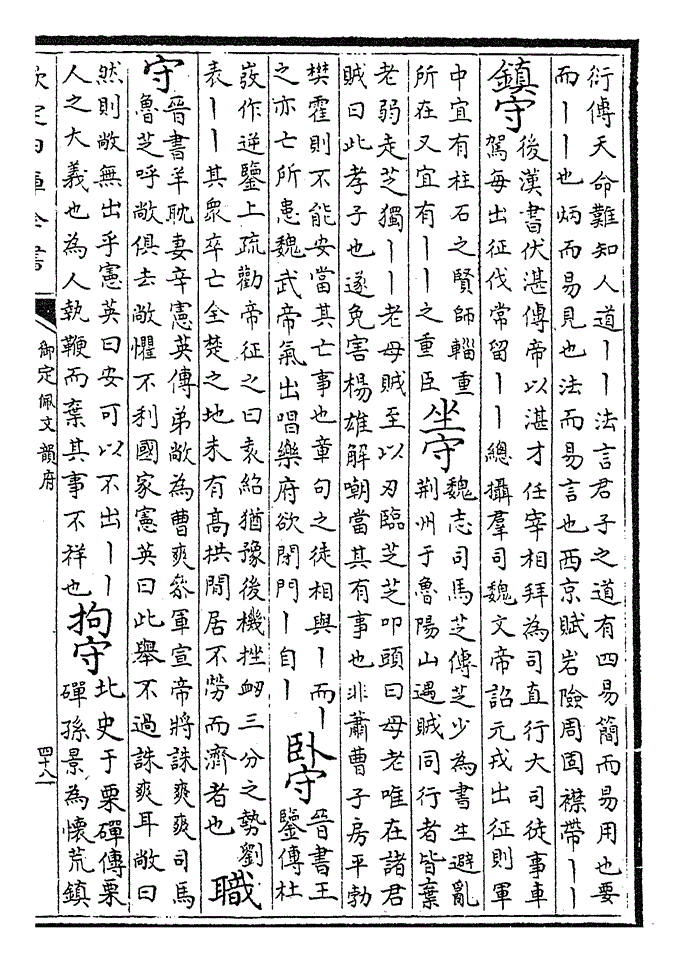 衍傳天命難知人道丨丨法言君子之道有四易簡而易用也要
而丨丨也炳而易見也法而易言也西京賦岩險周固襟帶丨丨
鎮守
後漢書伏湛傳帝以湛才任宰相拜為司直行大司徒事車
駕每出征伐常留丨丨總攝羣司魏文帝詔元戎出征則軍
中宜有柱石之賢師輜重
所在又宜有丨丨之重臣
坐守
魏志司馬芝傳芝少為書生避亂
荆州于魯陽山遇賊同行者皆棄
老弱走芝獨丨丨老母賊至以刃臨芝芝叩頭曰母老唯在諸君
賊曰此孝子也遂免害楊雄解嘲當其有事也非蕭曹子房平勃
樊霍則不能安當其亡事也章句之徒相與丨而丨
之亦亡所患魏武帝氣出唱樂府欲閉門丨自丨
臥守
晉書王
鑒傳杜
弢作逆鑒上疏勸帝征之曰袁紹猶豫後機挫衂三分之勢劉
表丨丨其衆卒亡全楚之地未有高拱閒居不勞而濟者也
職
守
晉書羊耽妻辛憲英傳弟敞為曹爽叅軍宣帝將誅爽爽司馬
魯芝呼敞俱去敞懼不利國家憲英曰此舉不過誅爽耳敞曰
然則敞無出乎憲英曰安可以不出丨丨
人之大義也為人執鞭而棄其事不祥也
拘守
北史于栗磾傳栗
磾孫景為懷荒鎮
欽定四庫全書
御定佩文韻府
四十八